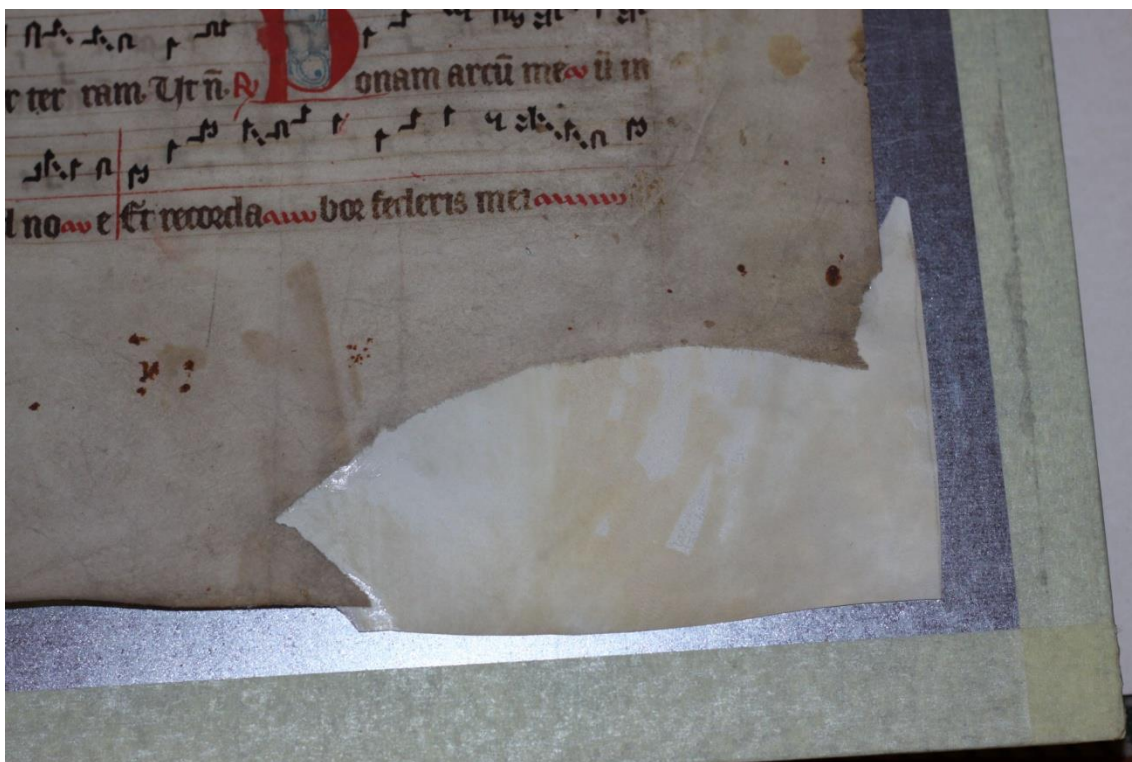 ter ram. Ut n̄. ℟ Ponam arcū me ū in
no e Et recorda bor federis mei